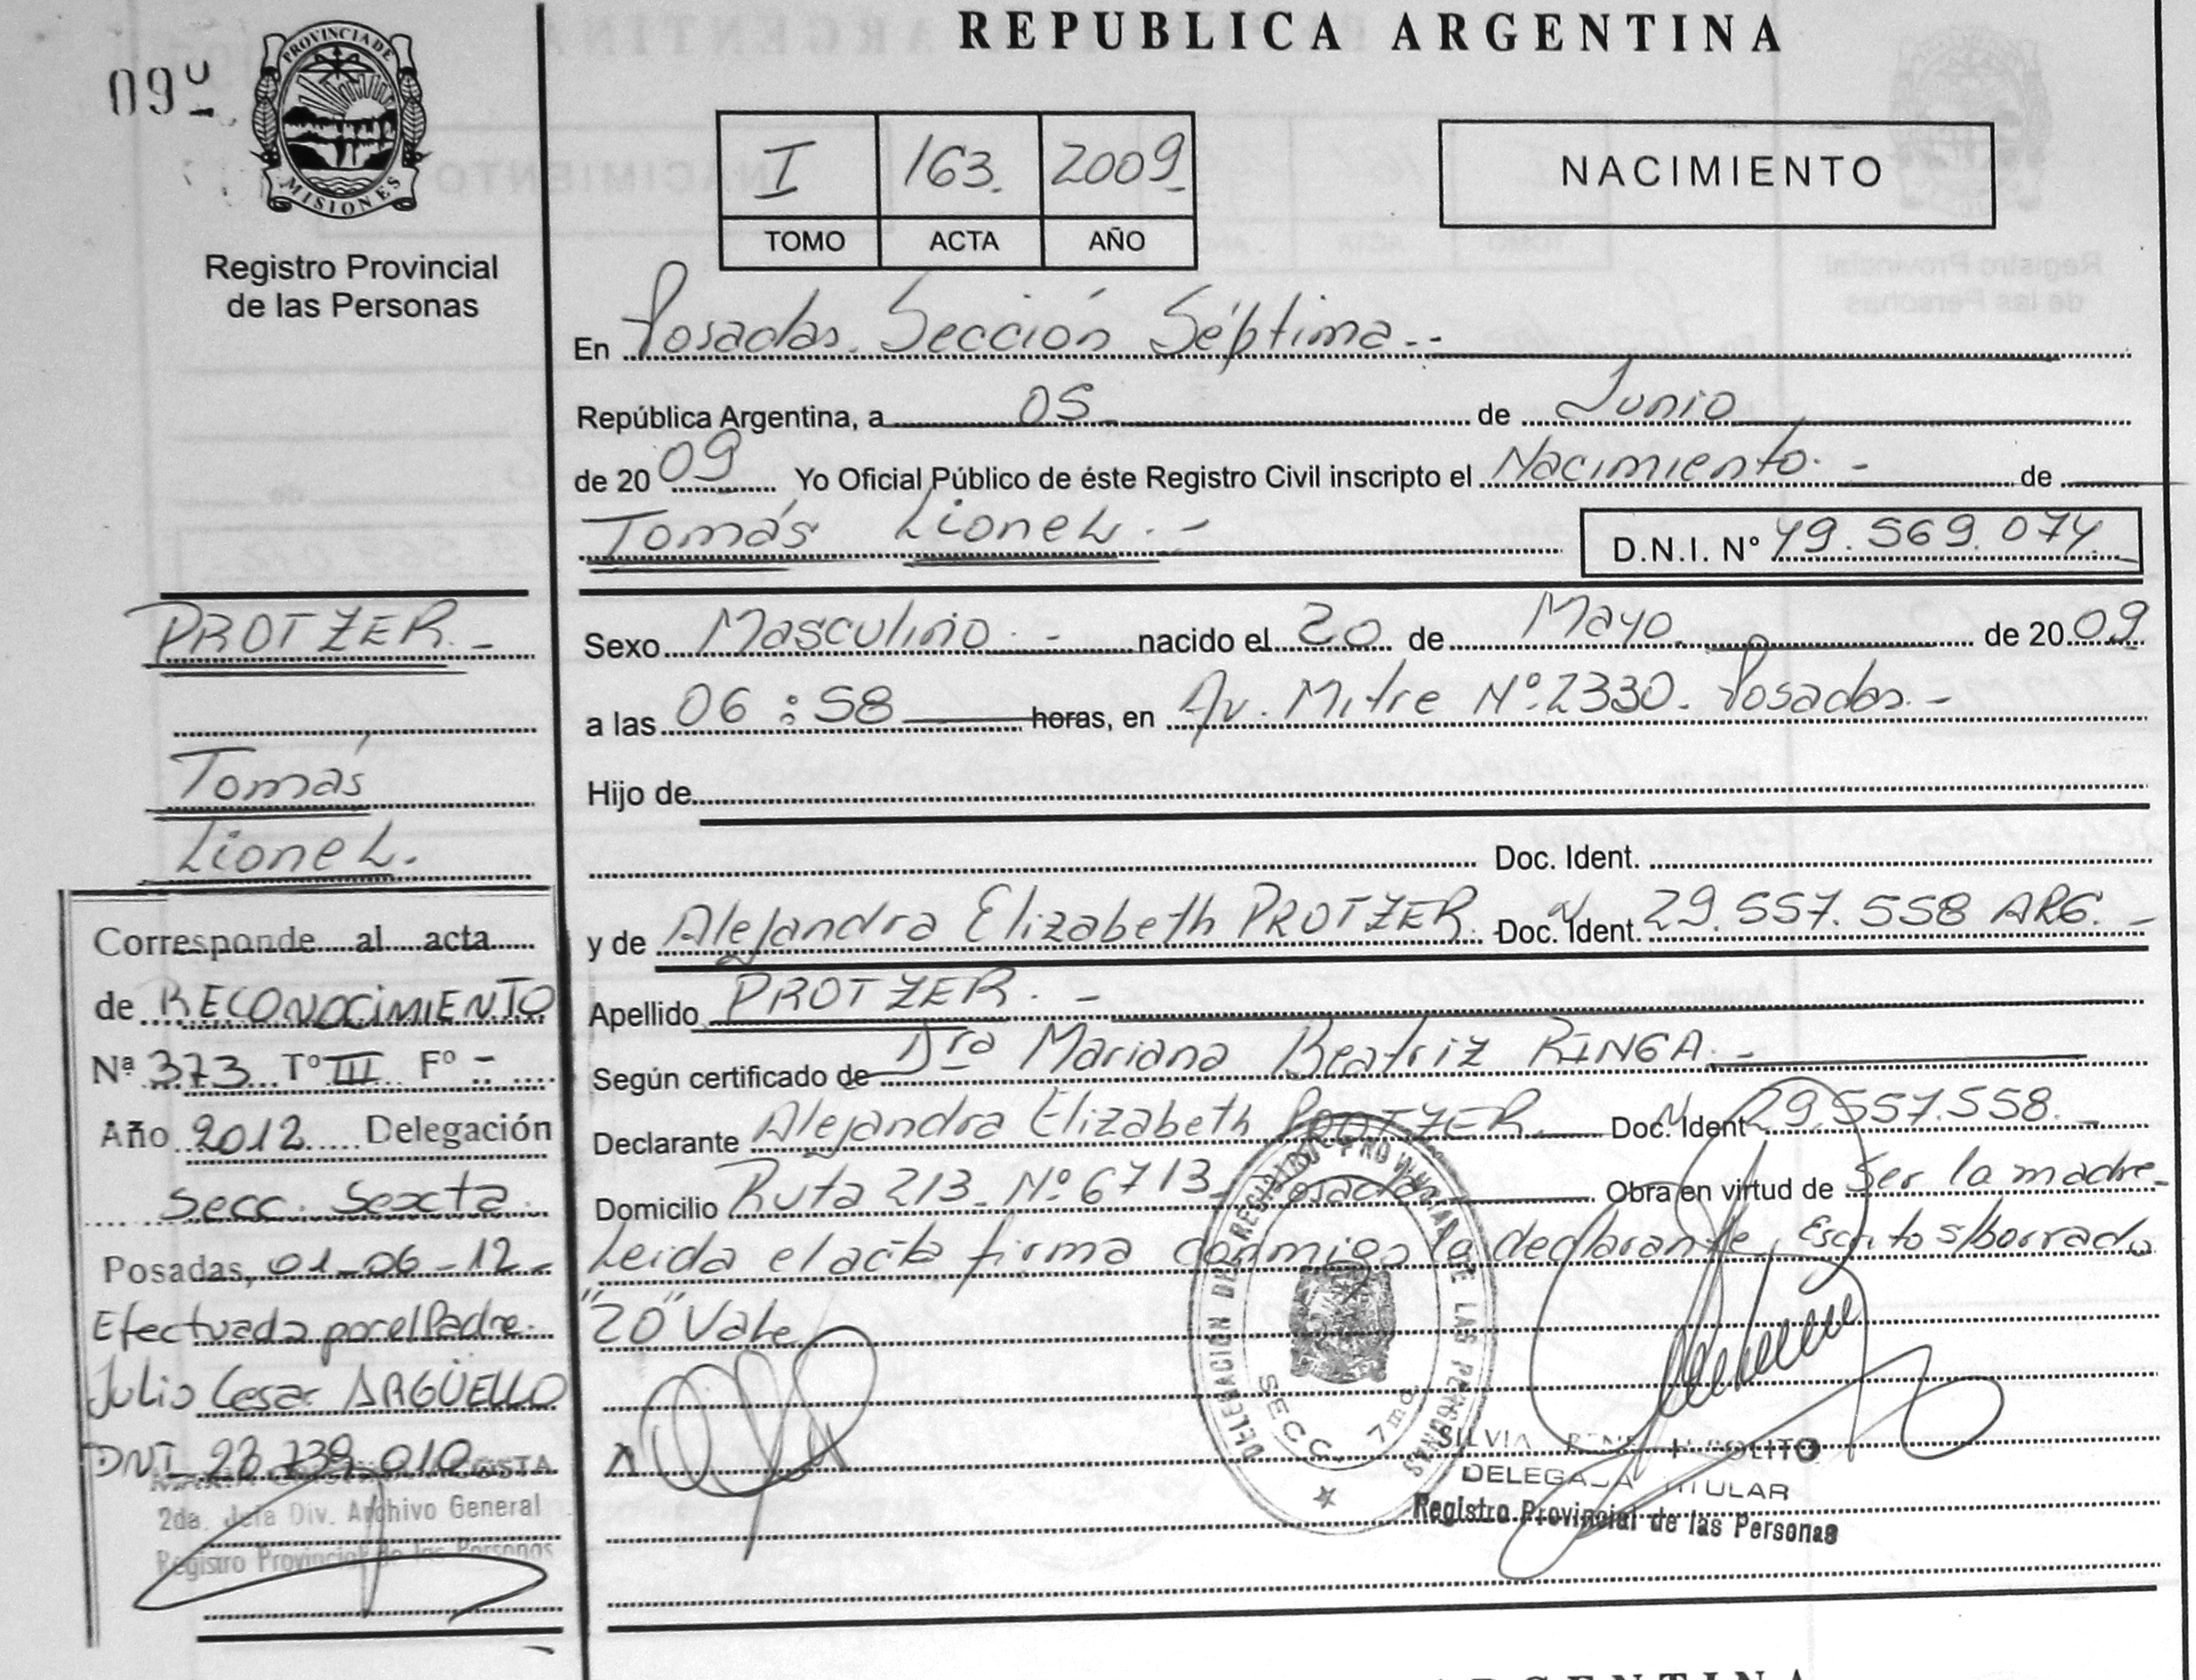 REPUBLICA ARGENTINA
09
PROVINCIA DE
MISIONES
Registro Provincial
de las Personas
I 163. 2009
TOMO ACTA AÑO
NACIMIENTO
En Posadas. Sección Séptima.-
República Argentina, a 05 de Junio
de 2009 Yo Oficial Público de éste Registro Civil inscripto el Nacimiento.- de
Tomás Lionel.-
D.N.I. Nº 49.569.074.
Sexo Masculino.- nacido el 20 de Mayo. de 2009
a las 06:58 horas, en Av. Mitre Nº.2330. Posadas.-
Hijo de
Doc. Ident.
y de Alejandra Elizabeth PROTZER. Doc. Ident. 29.557.558 ARG.-
Apellido PROTZER.-
Según certificado de Dra Mariana Beatriz RINGA.-
Declarante Alejandra Elizabeth PROTZER. Doc. Ident 29.557.558.-
Domicilio Ruta 213. Nº 6713. Posadas Obra en virtud de Ser la madre.
Leida el acta firma conmigo la declarante, Escrito s/borrado
"20" Vale
PROTZER.-
Tomás
Lionel.
Corresponde al acta
de RECONOCIMIENTO
Nª 373 Tº III Fº -
Año 2012 Delegación
Secc. Sexta.
Posadas, 01-06-12-
Efectuada por el Padre.
Julio Cesar ARGÜELLO
DNI 739.010
2da. Jefa Div. Archivo General
Registro Provincial de las Personas
DELEGACION DEL REGISTRO PROVINCIAL DE LAS PERSONAS
SECC. 7ma
SILVIA
DELEGADA TITULAR
Registro Provincial de las Personas
ARGENTINA